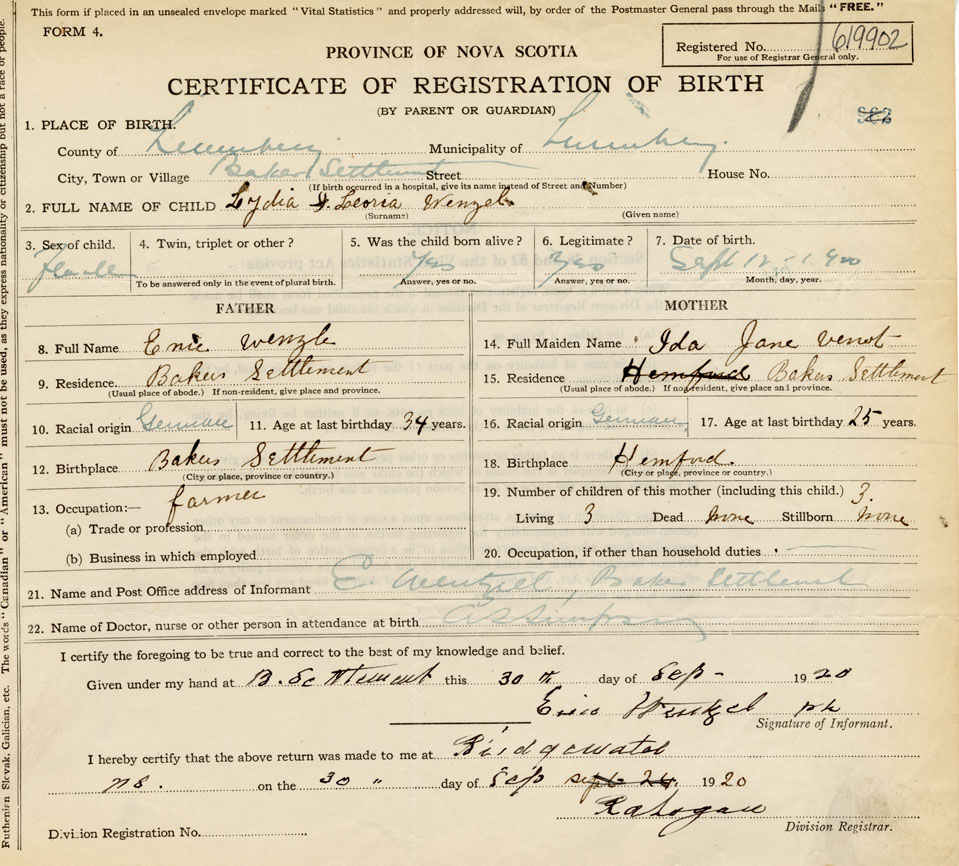 This form if placed in an unsealed envelope marked "Vital Statistics" and properly addressed will, by order of the Postmaster General pass through the Mails "FREE."
FORM 4.
Registered No. 619902
For use of Registrar General only.
PROVINCE OF NOVA SCOTIA
CERTIFICATE OF REGISTRATION OF BIRTH
(BY PARENT OR GUARDIAN)
1. PLACE OF BIRTH.
County of Lunenburg Municipality of Lunenburg
City, Town or Village Baker Settlement Street House No.
(If birth occurred in a hospital, give its name instead of Street and Number)
2. FULL NAME OF CHILD Lydia Leoria Wenzel
(Surname) (Given name)
3. Sex of child. 4. Twin, triplet or other? 5. Was the child born alive? 6. Legitimate? 7. Date of birth.
Female Yes Yes Sept 12 - 1920
To be answered only in the event of plural birth. Answer, yes or no. Answer, yes or no. Month, day, year.
FATHER MOTHER
8. Full Name Wenzle 14. Full Maiden Name Ida Jane Venot
9. Residence Bakers Settlement 15. Residence Hemford Bakers Settlement
(Usual place of abode.) If non-resident, give place and province. (Usual place of abode.) If non-resident, give place and province.
10. Racial origin German 11. Age at last birthday 34 years. 16. Racial origin German 17. Age at last birthday 25 years.
12. Birthplace Bakers Settlement 18. Birthplace Hemford.
(City or place, province or country.) (City or place, province or country.)
13. Occupation:— farmer 19. Number of children of this mother (including this child.) 3.
(a) Trade or profession Living 3 Dead None Stillborn None
(b) Business in which employed 20. Occupation, if other than household duties
21. Name and Post Office address of Informant E Wentzel, Baker Settlement
22. Name of Doctor, nurse or other person in attendance at birth Simpson
I certify the foregoing to be true and correct to the best of my knowledge and belief.
Given under my hand at B. Settlement this 30 th day of Sep - 1920
Wentzel
Signature of Informant.
I hereby certify that the above return was made to me at Bridgewater
NS. on the 30 " day of Sep sept 24, 1920
Division Registrar.
Division Registration No.
Ruthenian Slovak, Galician, etc. The words "Canadian" or "American" must not be used, as they express nationality or citizenship but not a race or people.